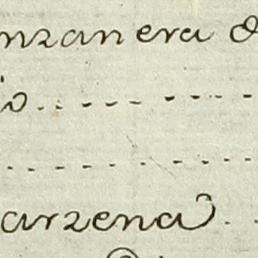 nzanera
io
arzena